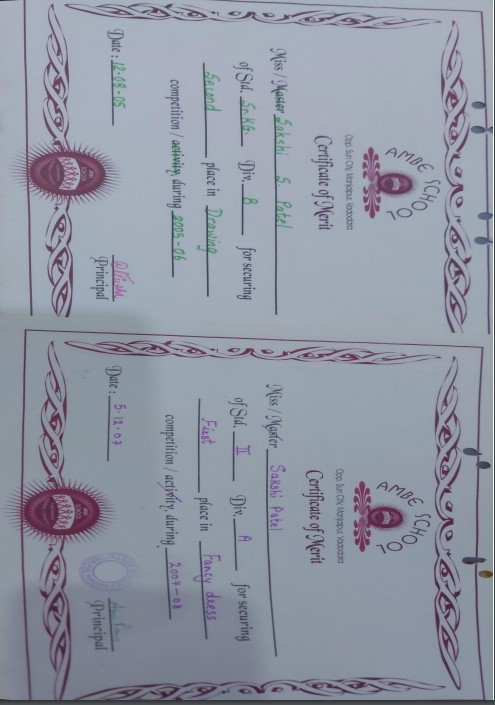 AMBE SCHOO
Opp. Sun City, Manjalpur, Vadodara
Certificate of Merit
Miss / Master Sakshi S. Patel
of Std. Sr.KG. Div. B for securing
Second place in Drawing
competition / activity, during 2005-06
Date : 12-08-05
Principal
AMBE SCHOO
Opp. Sun City, Manjalpur, Vadodara
Certificate of Merit
Miss / Master Sakshi Patel
of Std. II Div. A for securing
First place in Fancy dress
competition / activity, during 2007-08
Date : 5.12.07
Principal